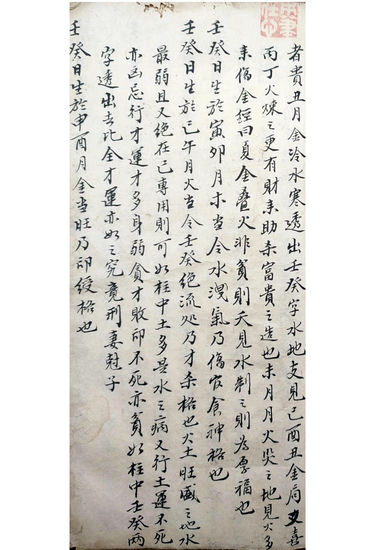 者貴丑月金冷水寒透出壬癸字水地支見己酉丑金局又喜
丙丁火煉之更有財來助亲富貴之造也未月月火炎之地見火多
来傷金經曰夏金叠火非貧則夭見水制之則為厚福也
壬癸日生於寅卯月木當令水洩氣乃傷官食神格也
壬癸日生於己午月火當令壬癸絕流处乃才杀格也火土旺盛之地水
最弱且又絕在己專用則可如柱中土多是水之病又行土運不死
亦凶忌行才運才多身弱貪才敗印不死亦貧如柱中壬癸兩
字透出去比全才運亦如之究竟刑妻尅子
壬癸日生於申酉月金当旺乃印绶格也